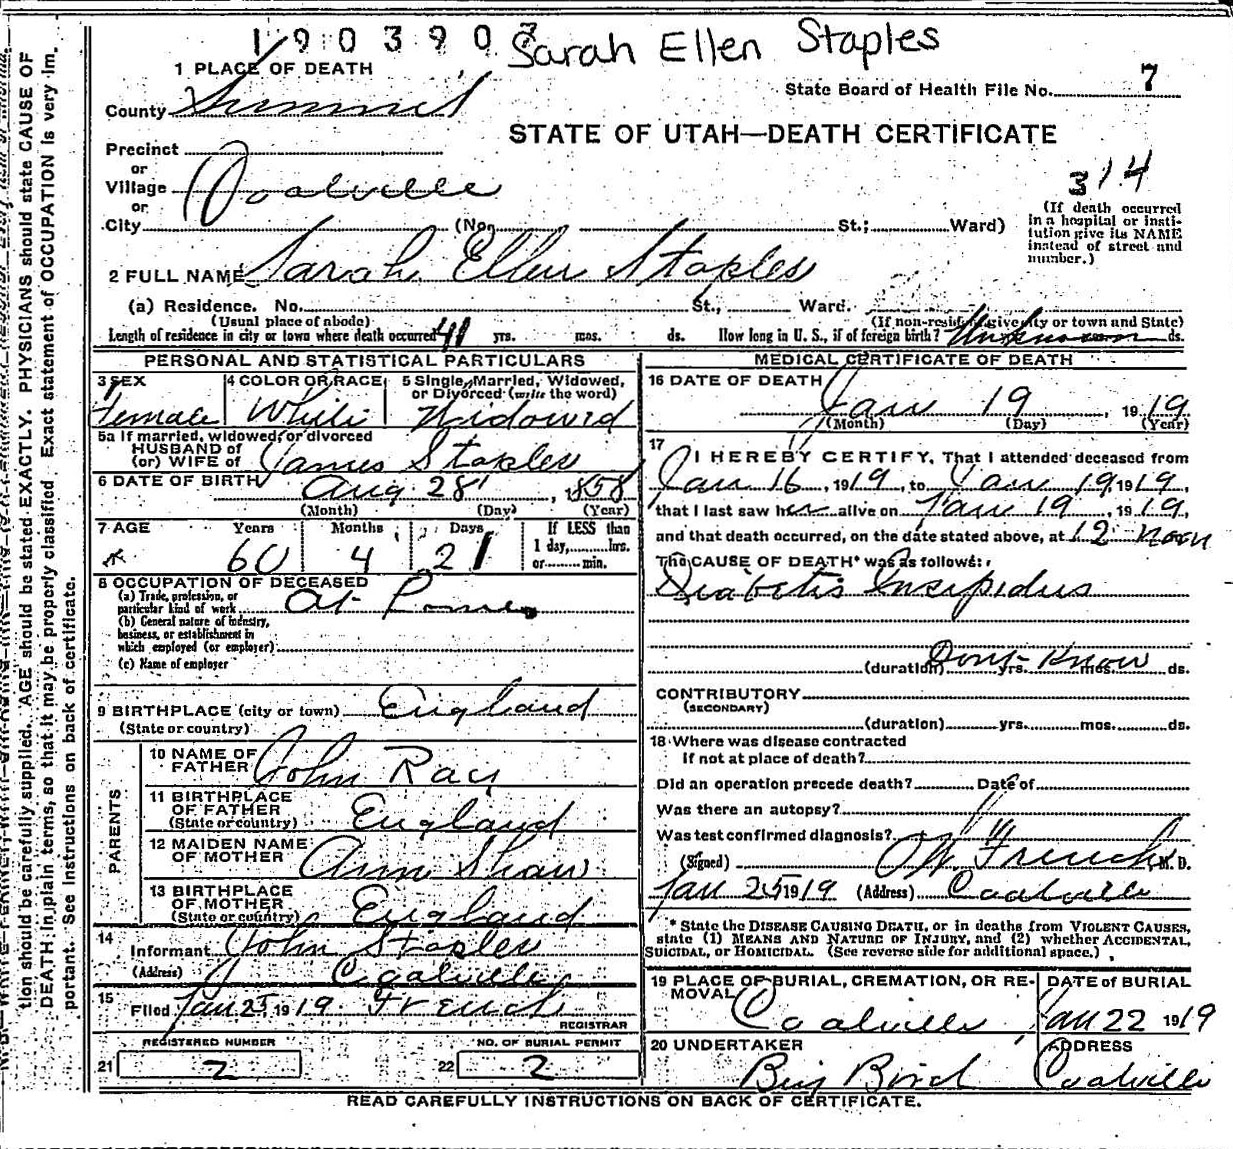 190390
Sarah Ellen Staples
1 PLACE OF DEATH
State Board of Health File No. 7
County Summit
STATE OF UTAH—DEATH CERTIFICATE
Precinct
or
Village Coalville
or
314
City (No. St.; Ward)
(If death occurred in a hospital or institution give its NAME instead of street and number.)
2 FULL NAME Sarah Ellen Staples
(a) Residence. No. St., Ward.
(Usual place of abode) (If non-resident give city or town and State)
Length of residence in city or town where death occurred 41 yrs. mos. ds. How long in U. S., if of foreign birth? Unknown ds.
PERSONAL AND STATISTICAL PARTICULARS
3 SEX Female
4 COLOR OR RACE White
5 Single, Married, Widowed, or Divorced (write the word) Widowed
5a If married, widowed, or divorced
HUSBAND of
(or) WIFE of James Staples
6 DATE OF BIRTH Aug. 28, 1858
(Month) (Day) (Year)
7 AGE Years Months Days If LESS than
60 4 21 1 day, hrs.
or min.
8 OCCUPATION OF DECEASED
(a) Trade, profession, or
particular kind of work At Home
(b) General nature of industry,
business, or establishment in
which employed (or employer)
(c) Name of employer
9 BIRTHPLACE (city or town) England
(State or country)
PARENTS
10 NAME OF FATHER John Ray
11 BIRTHPLACE OF FATHER (State or country) England
12 MAIDEN NAME OF MOTHER Ann Shaw
13 BIRTHPLACE OF MOTHER (State or country) England
14 Informant John Staples
(Address) Coalville
15 Filed Jan 25, 1919 French
REGISTRAR
REGISTERED NUMBER NO. OF BURIAL PERMIT
21 2 22 2
MEDICAL CERTIFICATE OF DEATH
16 DATE OF DEATH
Jan 19, 1919
(Month) (Day) (Year)
17 I HEREBY CERTIFY, That I attended deceased from
Jan 16, 1919, to Jan 19, 1919,
that I last saw her alive on Jan 19, 1919,
and that death occurred, on the date stated above, at 12 noon
The CAUSE OF DEATH* was as follows:
Diabetis Insipidus
(duration) Dont Know yrs. mos. ds.
CONTRIBUTORY
(SECONDARY)
(duration) yrs. mos. ds.
18 Where was disease contracted
if not at place of death?
Did an operation precede death? Date of
Was there an autopsy?
Was test confirmed diagnosis?
(Signed) French, M. D.
Jan 25 1919 (Address) Coalville
* State the DISEASE CAUSING DEATH, or in deaths from VIOLENT CAUSES,
state (1) MEANS AND NATURE OF INJURY, and (2) whether ACCIDENTAL,
SUICIDAL, or HOMICIDAL. (See reverse side for additional space.)
19 PLACE OF BURIAL, CREMATION, OR REMOVAL Coalville
DATE of BURIAL Jan 22 1919
20 UNDERTAKER Bird
ADDRESS Coalville
READ CAREFULLY INSTRUCTIONS ON BACK OF CERTIFICATE.
tion should be carefully supplied. AGE should be stated EXACTLY. PHYSICIANS should state CAUSE OF
DEATH in plain terms, so that it may be properly classified. Exact statement of OCCUPATION is very im-
portant. See instructions on back of certificate.